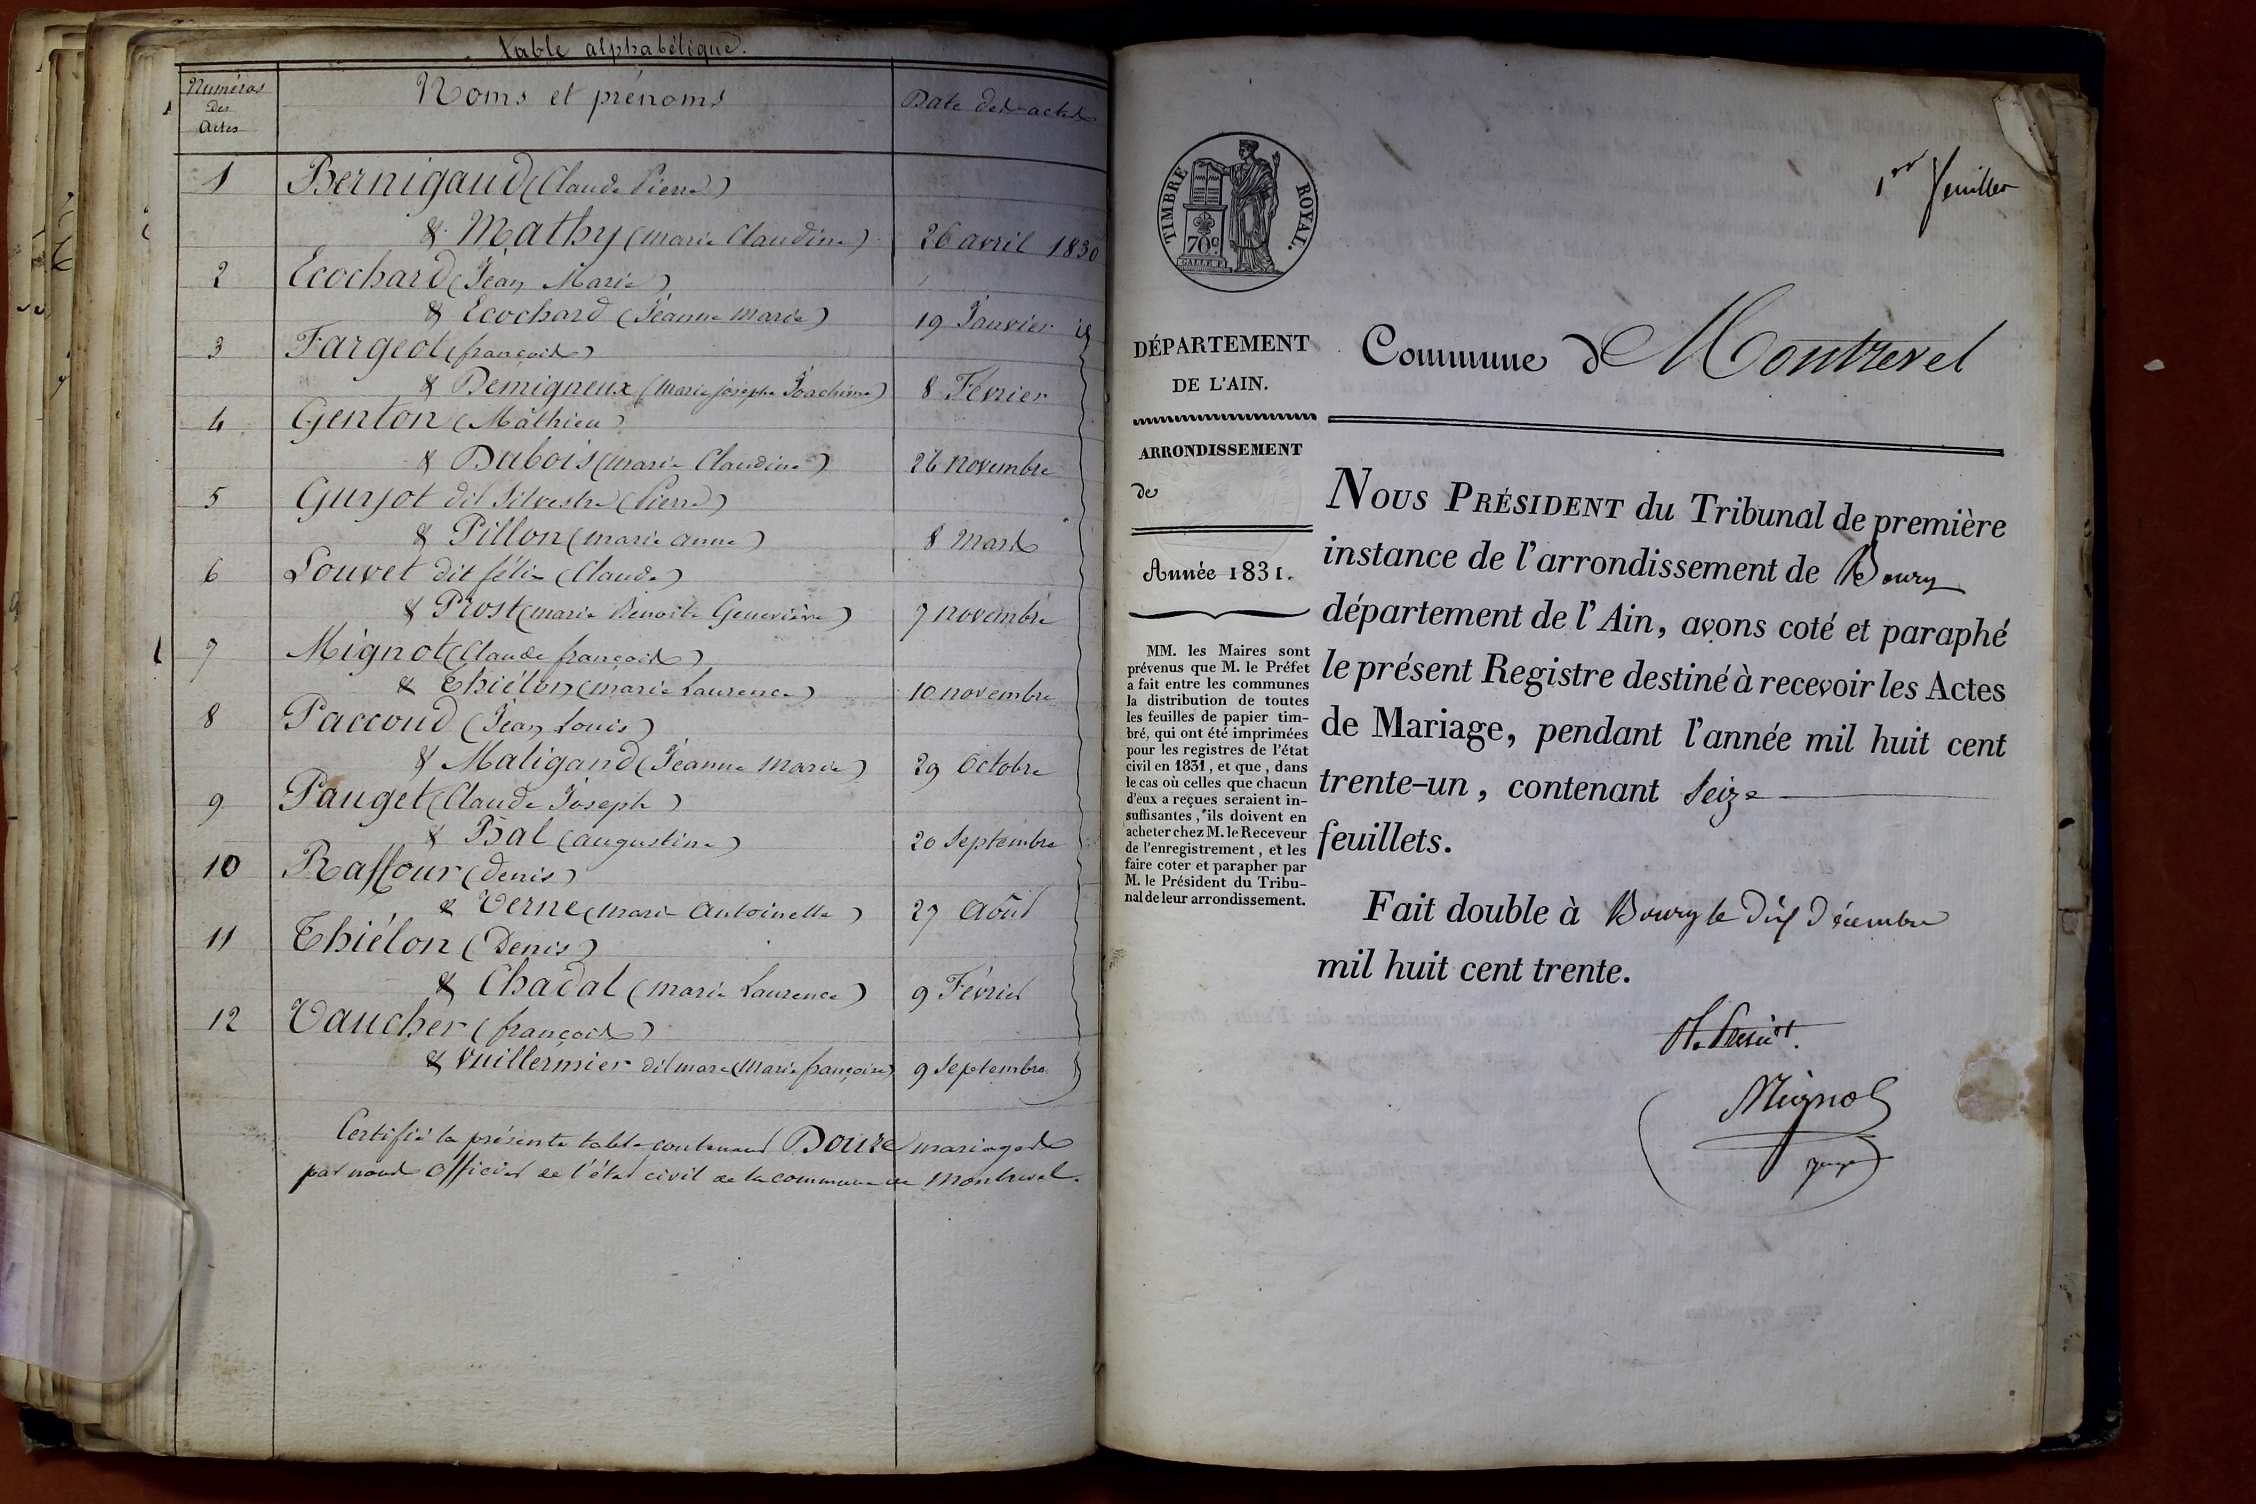 Table alphabétique.
Numéros
Des
Actes
Noms et prénoms
Date des actes
1 Bernigaud (Claude Pierre)
& Mathy (Marie Claudine) 26 avril 1830
2 Ecochard (Jean Marie)
& Ecochard (Jeanne Marie) 19 Janvier id
3 Fargeot (françois)
& Demigneux (Marie josephe Joachime) 8 Février
4 Genton (Mathieu)
& Dubois (Marie Claudine) 26 novembre
5 Guyot dit Silvestre (Pierre)
& Pillon (marie anne) 8 Mars
6 Louvet dit féli (Claude)
& Prost (marie Benoite Geneviève) 7 novembre
7 Mignot (Claude françois)
& Thiélon (marie Laurence) 10 novembre
8 Paccoud (Jean Louis)
& Maligand (Jeanne Marie) 29 Octobre
9 Pauget (Claude Joseph)
& Bal (augustine) 20 Septembre
10 Raffour (Denis)
& Verne (Marie Antoinette) 27 Août
11 Thiélon (Denis)
& Chadal (Marie Laurence) 9 Février
12 Vaucher (françois)
& Vuillermier dit mare (Marie françoise) 9 Septembre
Certifié la présente table contenant Douze mariages
par nous Officier de l'état civil de la commune de Montrevel.
1er feuillet
TIMBRE ROYAL.
70c
GALLE F.
DÉPARTEMENT
DE L'AIN.
Commune de Montrevel
ARRONDISSEMENT
de
Année 1831.
MM. les Maires sont
prévenus que M. le Préfet
a fait entre les communes
la distribution de toutes
les feuilles de papier tim-
bré, qui ont été imprimées
pour les registres de l'état
civil en 1831, et que, dans
le cas où celles que chacun
d'eux a reçues seraient in-
suffisantes, ils doivent en
acheter chez M. le Receveur
de l'enregistrement, et les
faire coter et parapher par
M. le Président du Tribu-
nal de leur arrondissement.
NOUS PRÉSIDENT du Tribunal de première
instance de l'arrondissement de Bourg
département de l'Ain, avons coté et paraphé
le présent Registre destiné à recevoir les Actes
de Mariage, pendant l'année mil huit cent
trente-un, contenant Seize
feuillets.
Fait double à Bourg le dix Décembre
mil huit cent trente.
Mignot
juge